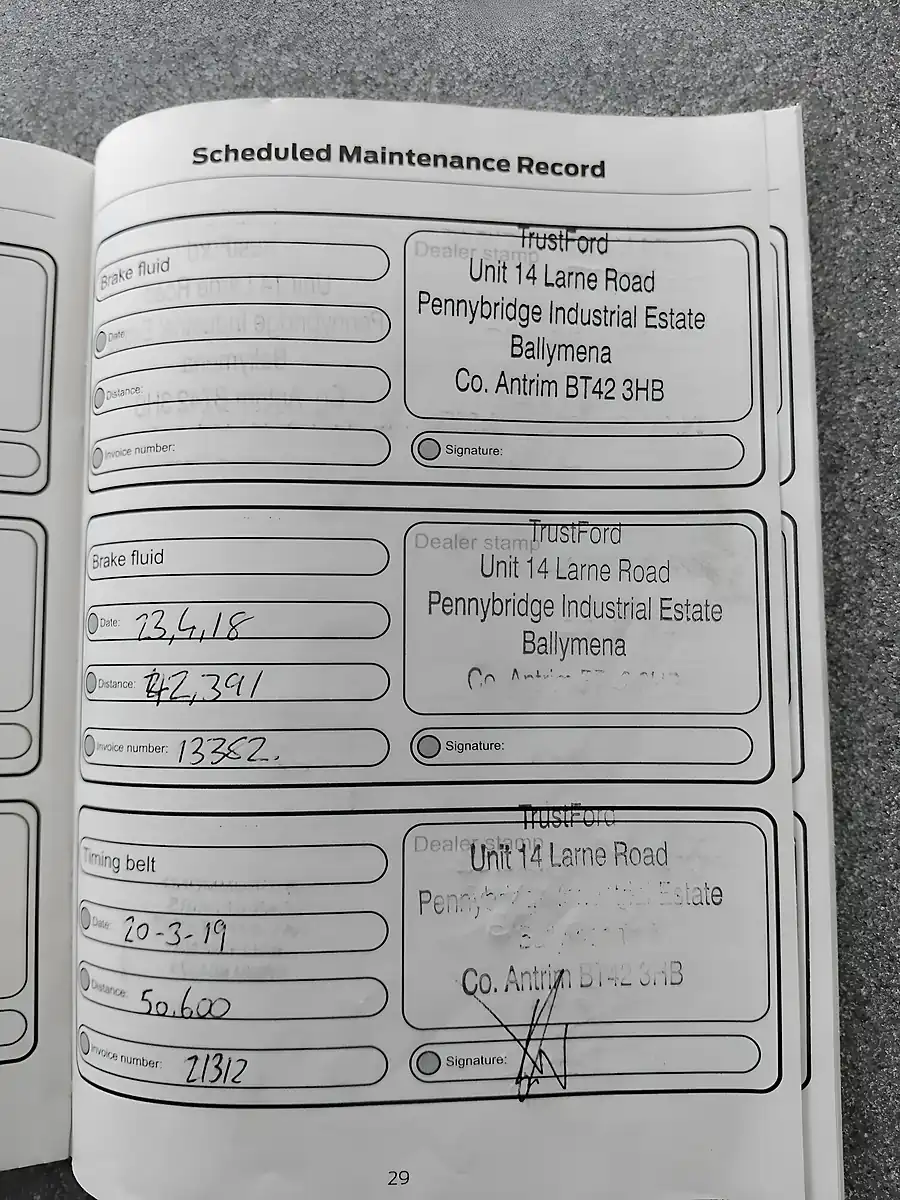 Scheduled Maintenance Record
Brake fluid
Date:
Distance:
Invoice number:
Dealer stamp
TrustFord
Unit 14 Larne Road
Pennybridge Industrial Estate
Ballymena
Co. Antrim BT42 3HB
Signature:
Brake fluid
Date: 23,4,18
Distance: 42,391
Invoice number: 13382.
Dealer stamp
TrustFord
Unit 14 Larne Road
Pennybridge Industrial Estate
Ballymena
Co. Antrim
Signature:
Timing belt
Date: 20-3-19
Distance: 50,600
Invoice number: 21312
Dealer stamp
TrustFord
Unit 14 Larne Road
Pennybridge Industrial Estate
Co. Antrim BT42 3HB
Signature:
29